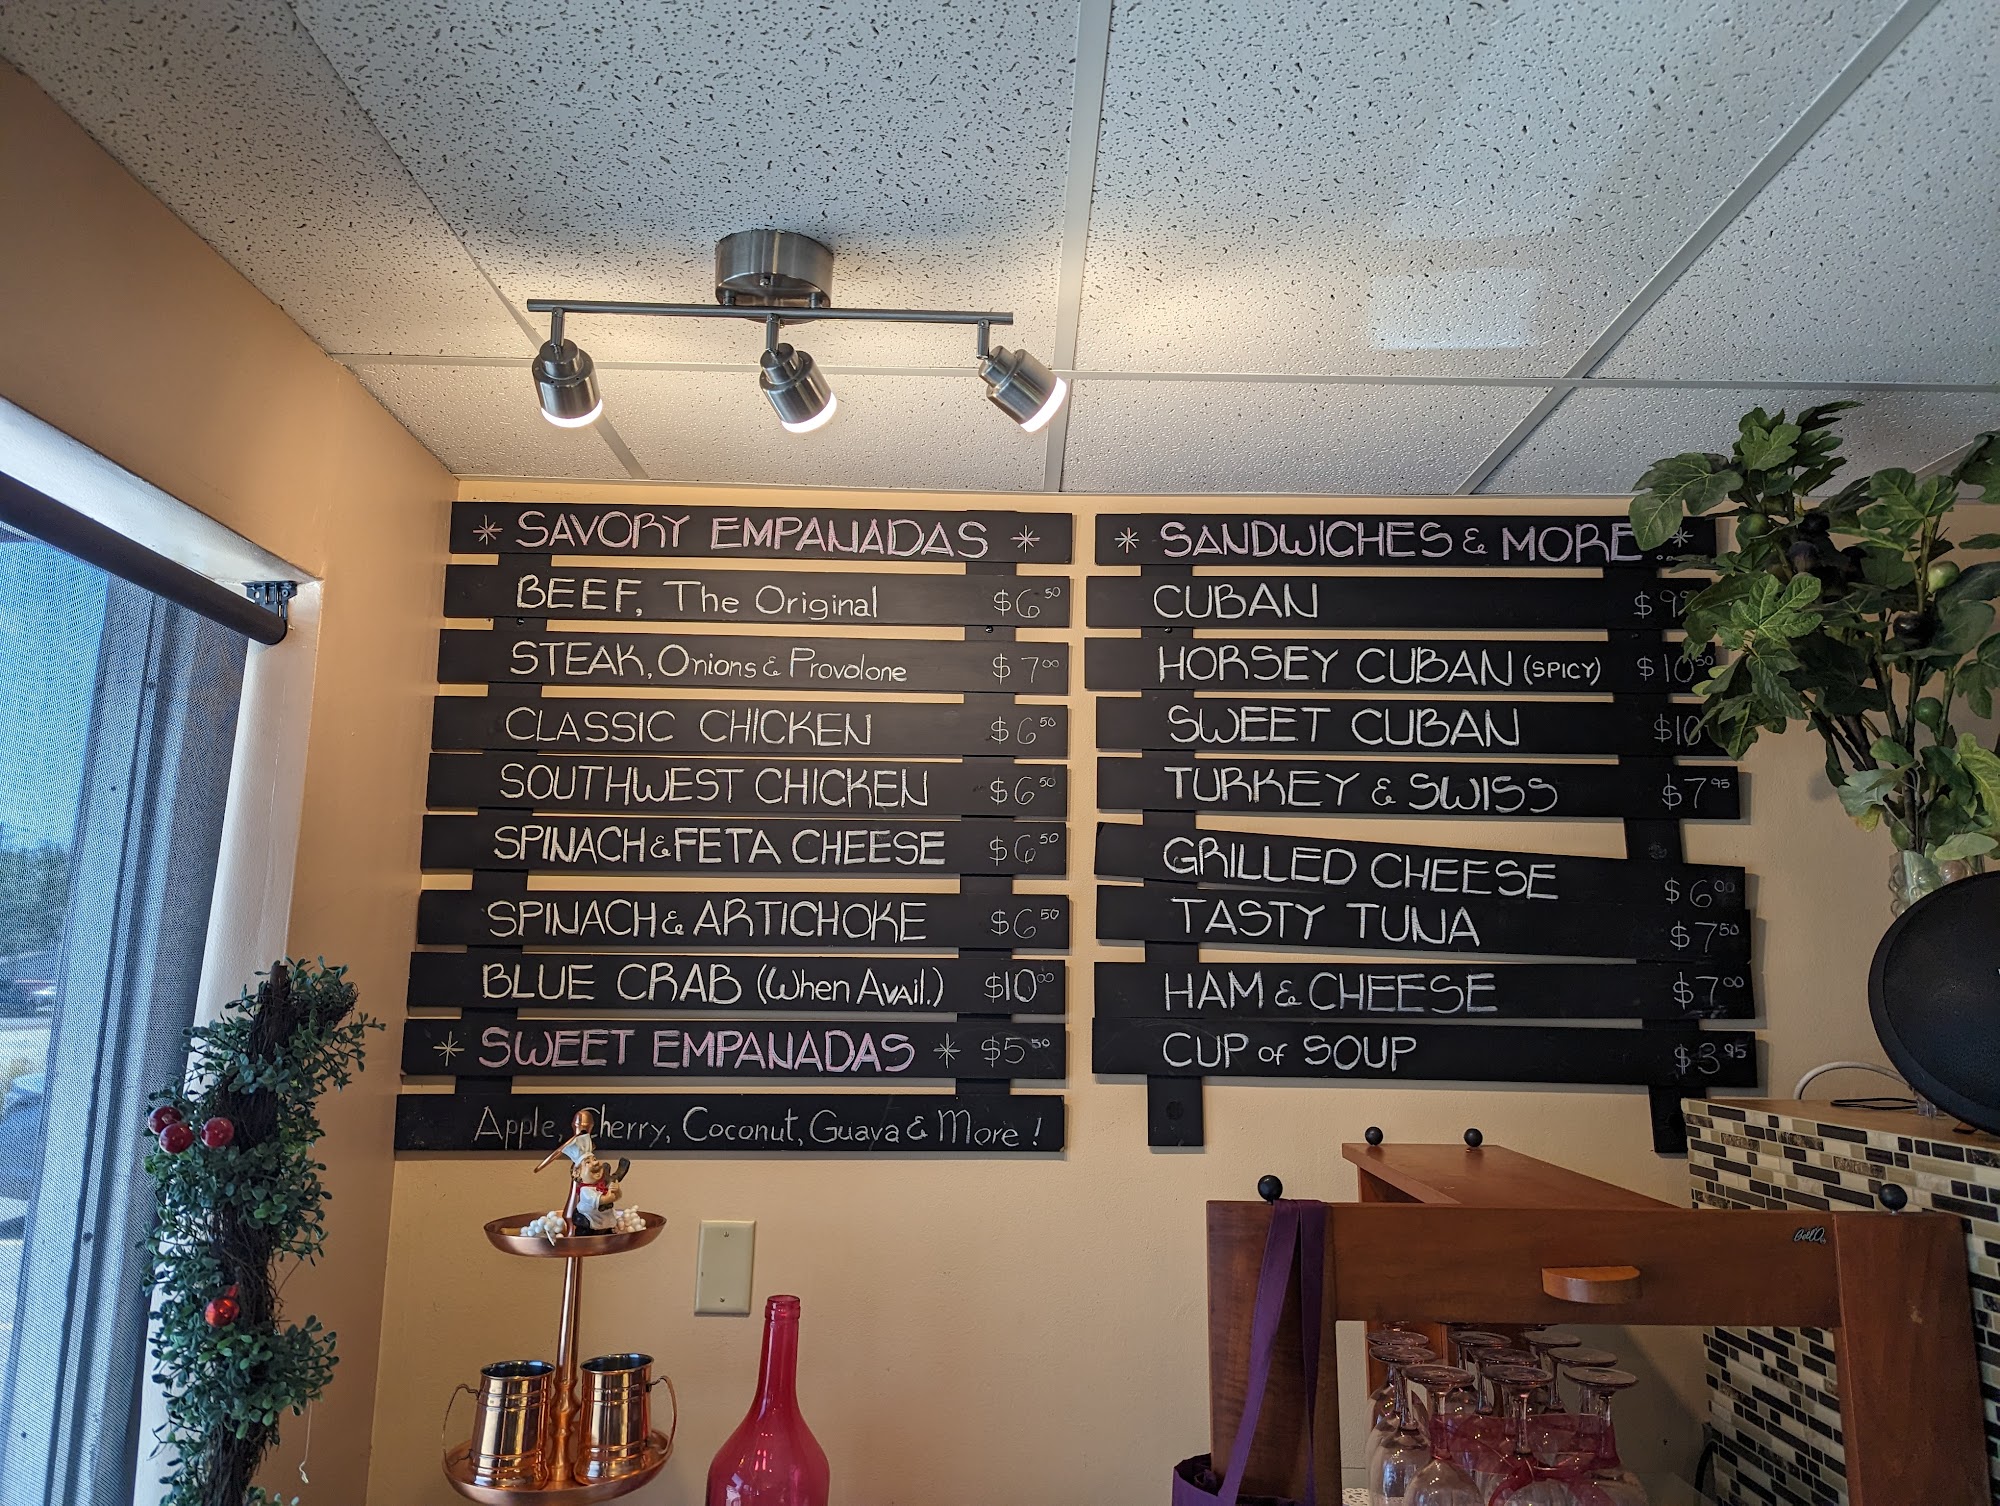 * SAVORY EMPANADAS *
BEEF, The Original $6.50
STEAK, Onions & Provolone $7.00
CLASSIC CHICKEN $6.50
SOUTHWEST CHICKEN $6.50
SPINACH & FETA CHEESE $6.50
SPINACH & ARTICHOKE $6.50
BLUE CRAB (When Avail.) $10.00
* SWEET EMPANADAS * $5.50
Apple, Cherry, Coconut, Guava & More!
* SANDWICHES & MORE... *
CUBAN
HORSEY CUBAN (SPICY) $10.50
SWEET CUBAN
TURKEY & SWISS $7.95
GRILLED CHEESE $6.00
TASTY TUNA $7.50
HAM & CHEESE $7.00
CUP of SOUP $3.95